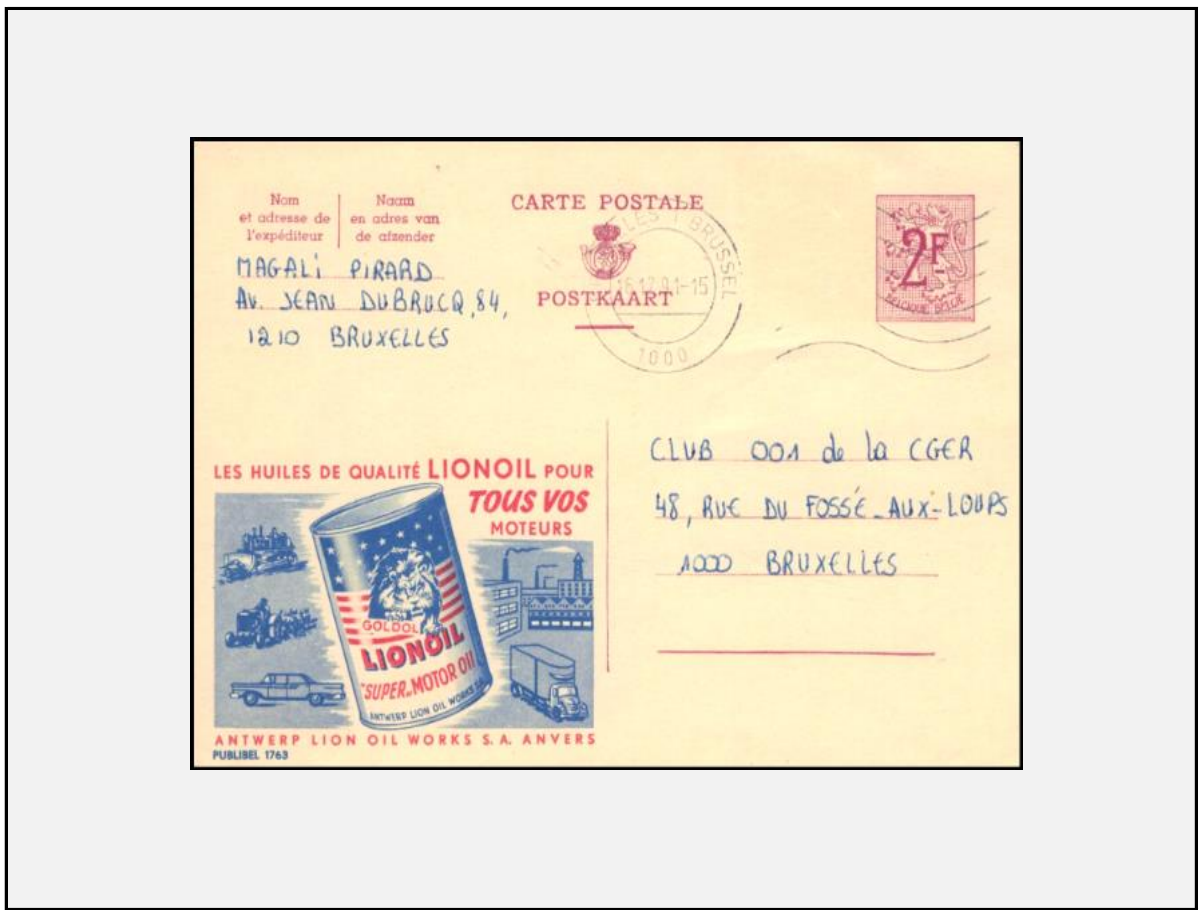 Nom
et adresse de
l'expéditeur
Naam
en adres van
de afzender
CARTE POSTALE
POSTKAART
BRUSSEL
1000
2F
BELGIQUE BELGIË
MAGALI PIRARD
AV. JEAN DUBRUCQ, 84,
1210 BRUXELLES
CLUB 001 de la CGER
48, RUE DU FOSSÉ-AUX-LOUPS
1000 BRUXELLES
LES HUILES DE QUALITÉ LIONOIL POUR
TOUS VOS
MOTEURS
GOLDOL
LIONOIL
"SUPER" MOTOR OIL
ANTWERP LION OIL WORKS S.A.
ANTWERP LION OIL WORKS S.A. ANVERS
PUBLIBEL 1763